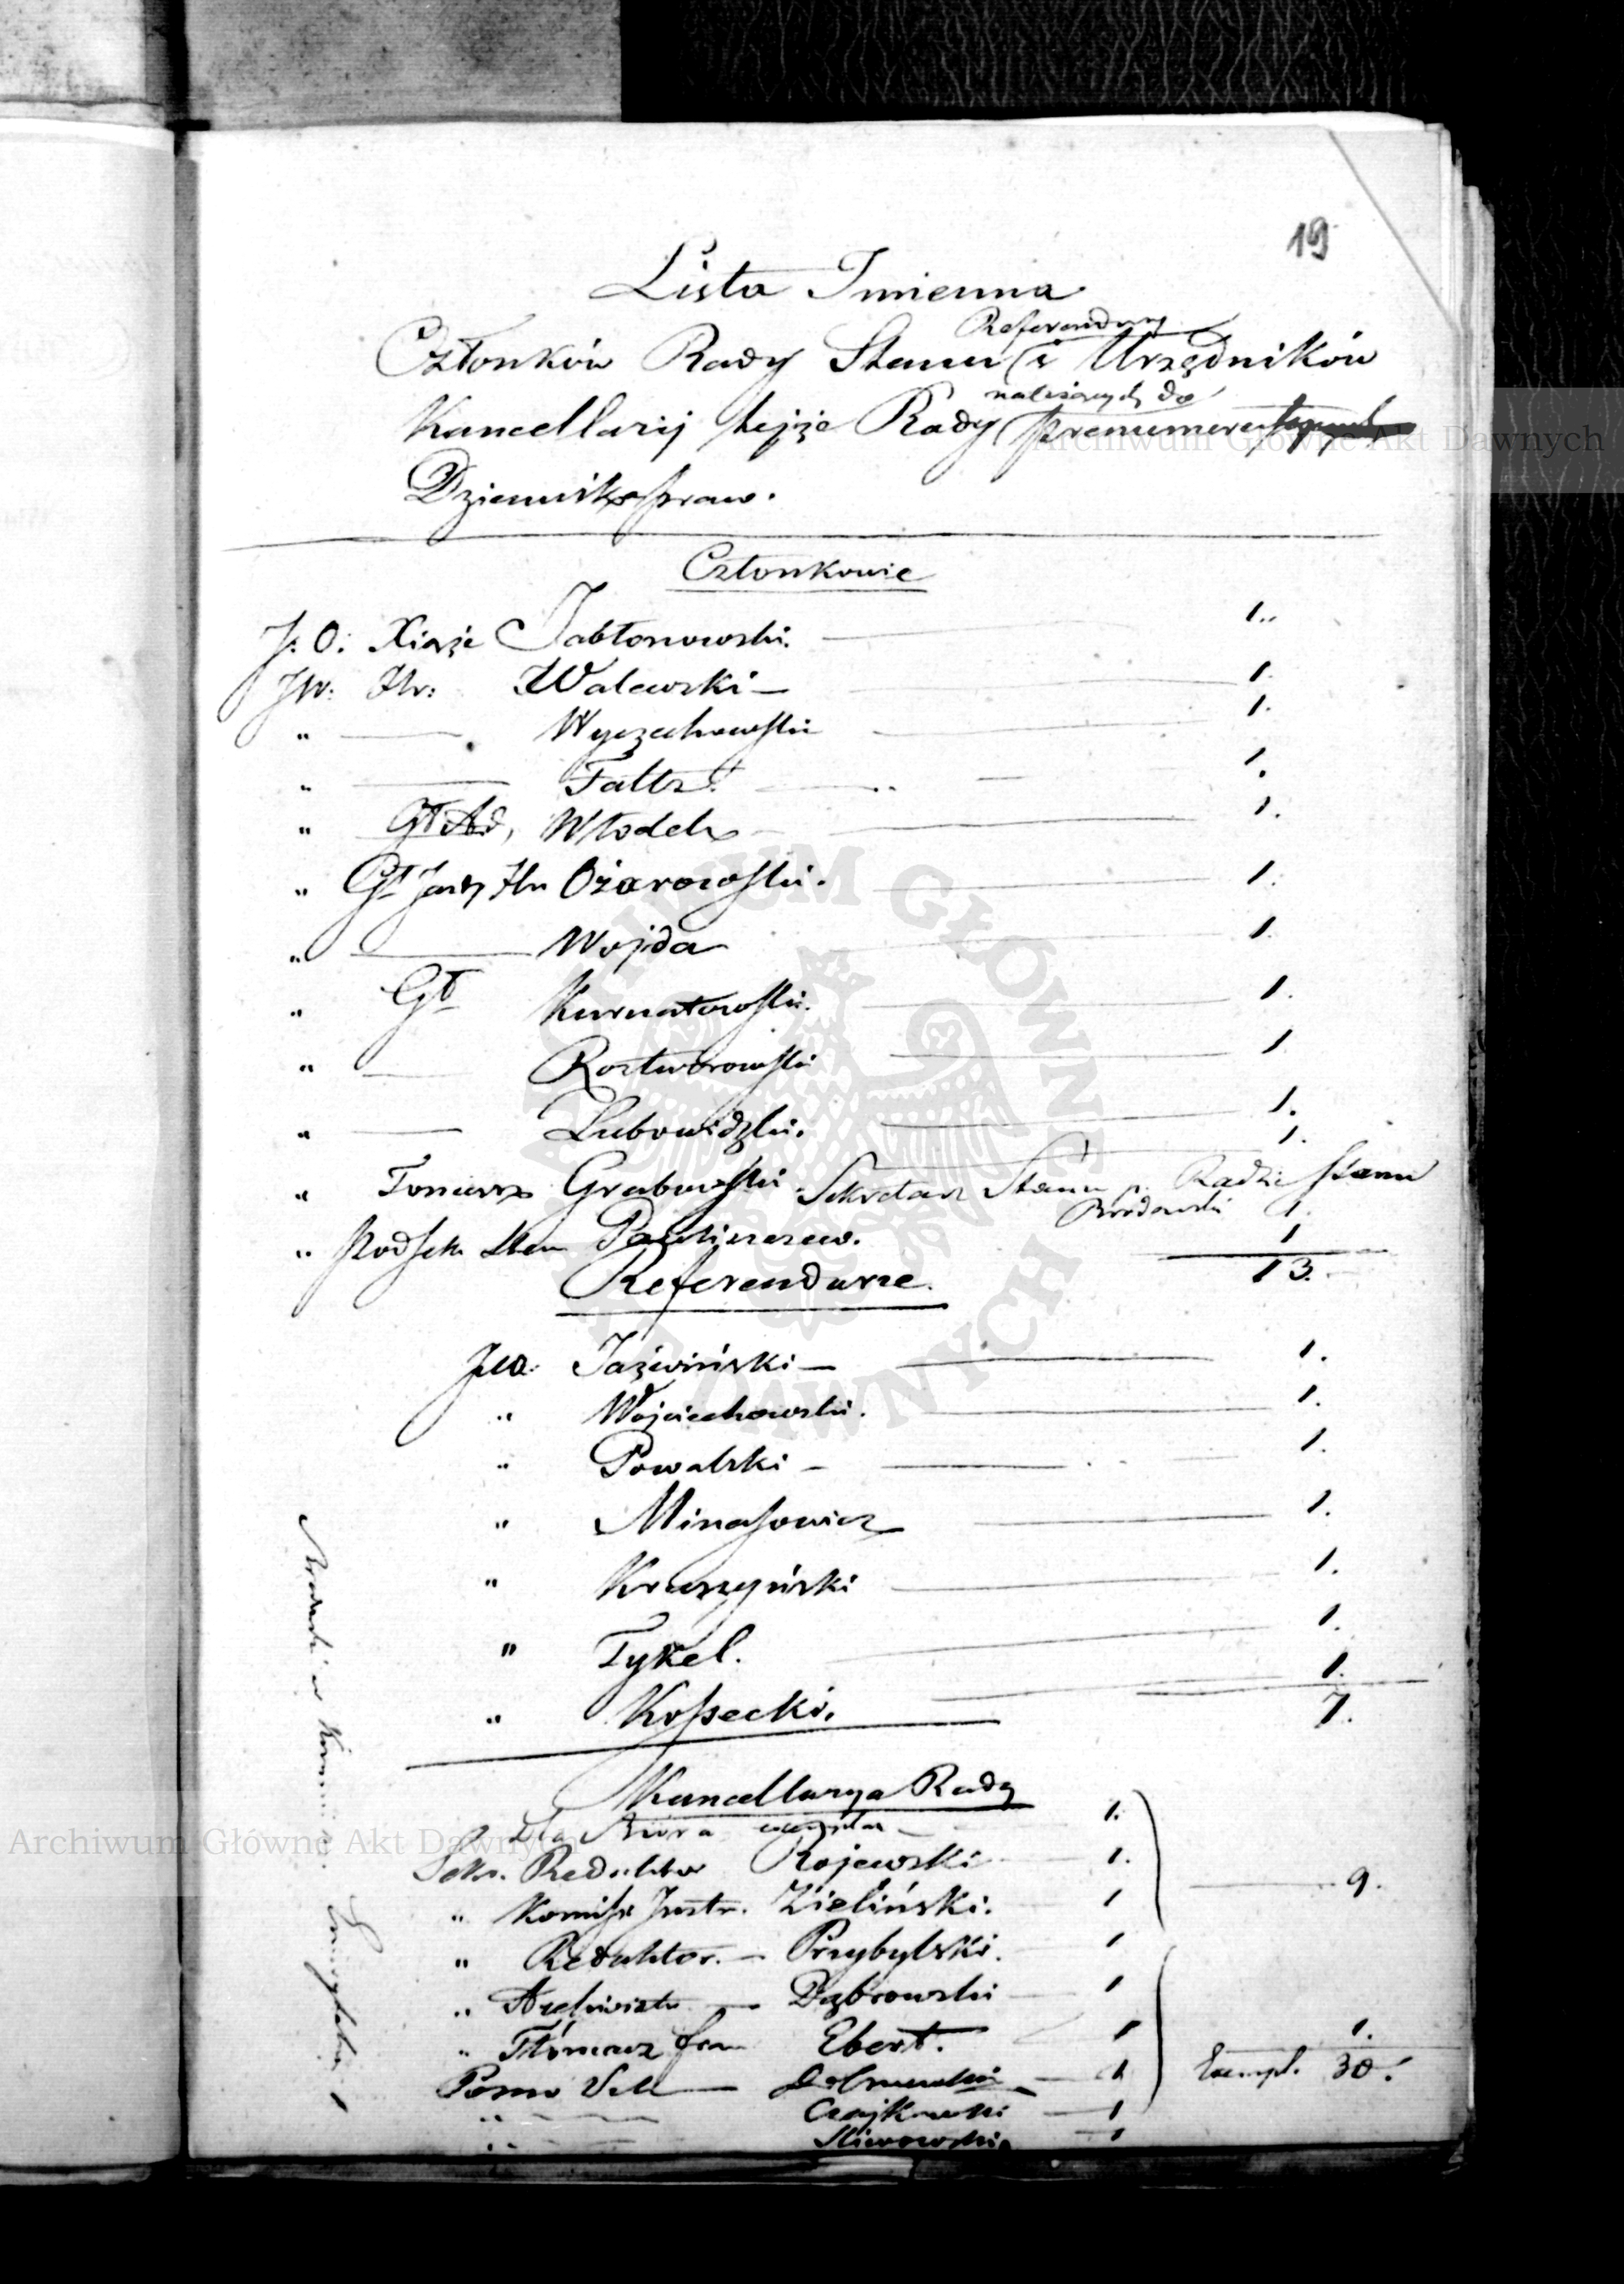 19
Lista Imienna
Referendarzy
Członków Rady Stanu i Urzędników
należących do
Kancellarij tejże Rady prenumeru
Dziennika praw.
Członkowie
J: O: Xiąże Jabłonowski. 1.
JW: Hr: Walewski 1.
" Wyczechowski 1.
" Faltz 1.
" Gł Ad, Włodek 1.
" Gł Jazdy Hr Ożarowski. 1.
" Wojda 1.
" Gł Kurnatowski. 1.
" Roztworowski 1
" Lubowidzki. 1.
1.
" Tomasz Grabowski Sekretarz Stanu p. Radzie Stanu
Brodowski 1.
" Podsek. Stanu 1
13.
Referendarze.
JW: Jaźwiński 1.
" Wojciechowski. 1.
" Powalski 1.
" Minasowicz 1.
" Kruszyński 1.
" Tykel. 1.
" Kossecki. 1.
7.
Kancellarya Rady
Dla Biura 1.
Sekr. Redaktor Rojewski 1.
" Komiss Instr. Zieliński. 1
9.
" Redaktor. Przybylski. 1
" Archiwista Dąbrowski 1
" Tłómacz fran Ebert. 1
1.
Pomo Sek 1
Exempl. 30.
" Czajkowski 1
" Sliwowski 1
Archiwum Główne Akt Dawnych
Archiwum Główne Akt Dawnych
ARCHIWUM GŁÓWNE AKT DAWNYCH